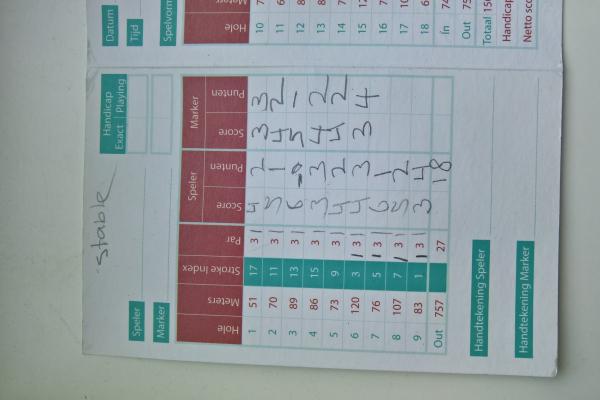 stable
Speler
Marker
Handicap
Exact Playing
Speler Marker
Hole Meters Stroke Index Par Score Punten Score Punten
1 51 17 3 4 2 3 3
2 70 11 3 5 1 4 2
3 89 13 3 6 0 5 1
4 86 15 3 3 3 4 2
5 73 9 3 4 2 4 2
6 120 3 3 4 3 3 4
7 76 5 3 6 1
8 107 7 3 5 2
9 83 1 3 3 4
Out 757 27 18
Handtekening Speler
Handtekening Marker
Datum
Tijd
Spelvorm
Hole Meters
10
11
12
13
14
15
16
17
18
In
Out
Totaal
Handicap
Netto